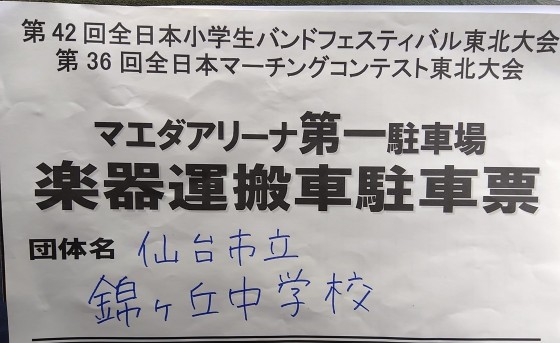 第42回全日本小学生バンドフェスティバル東北大会
第36回全日本マーチングコンテスト東北大会
マエダアリーナ第一駐車場
楽器運搬車駐車票
団体名 仙台市立
錦ヶ丘中学校